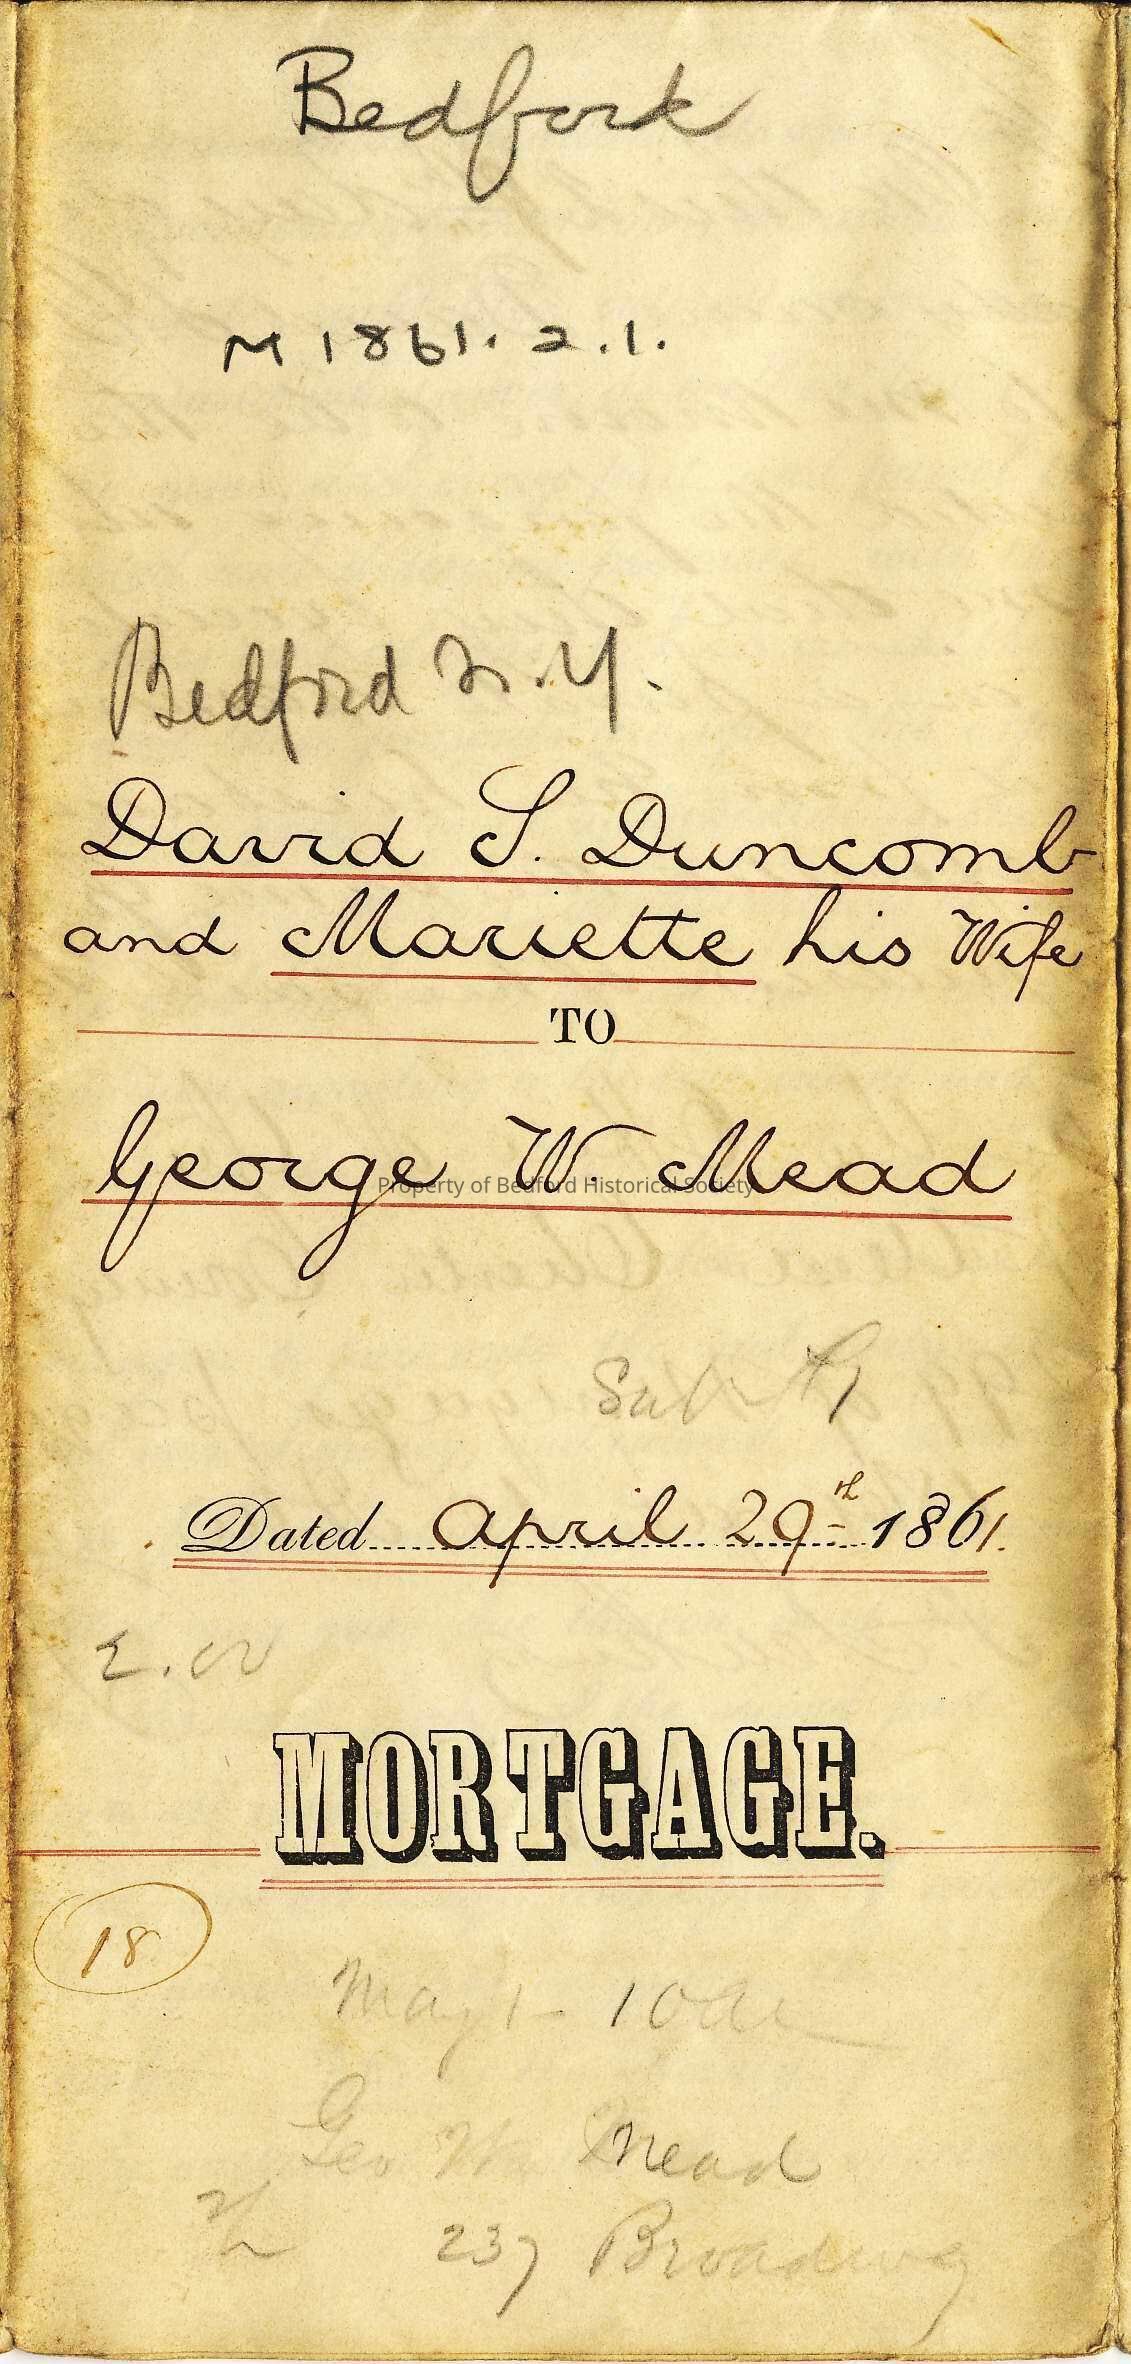 Bedford
M 1861.2.1.
Bedford N.Y.
David S. Duncomb
and Mariette his Wife
TO
George W. Mead
Property of Bedford Historical Society
Dated April 29th 1861.
MORTGAGE.
18
May 1 - 10
Geo W. Mead
237 Broadway